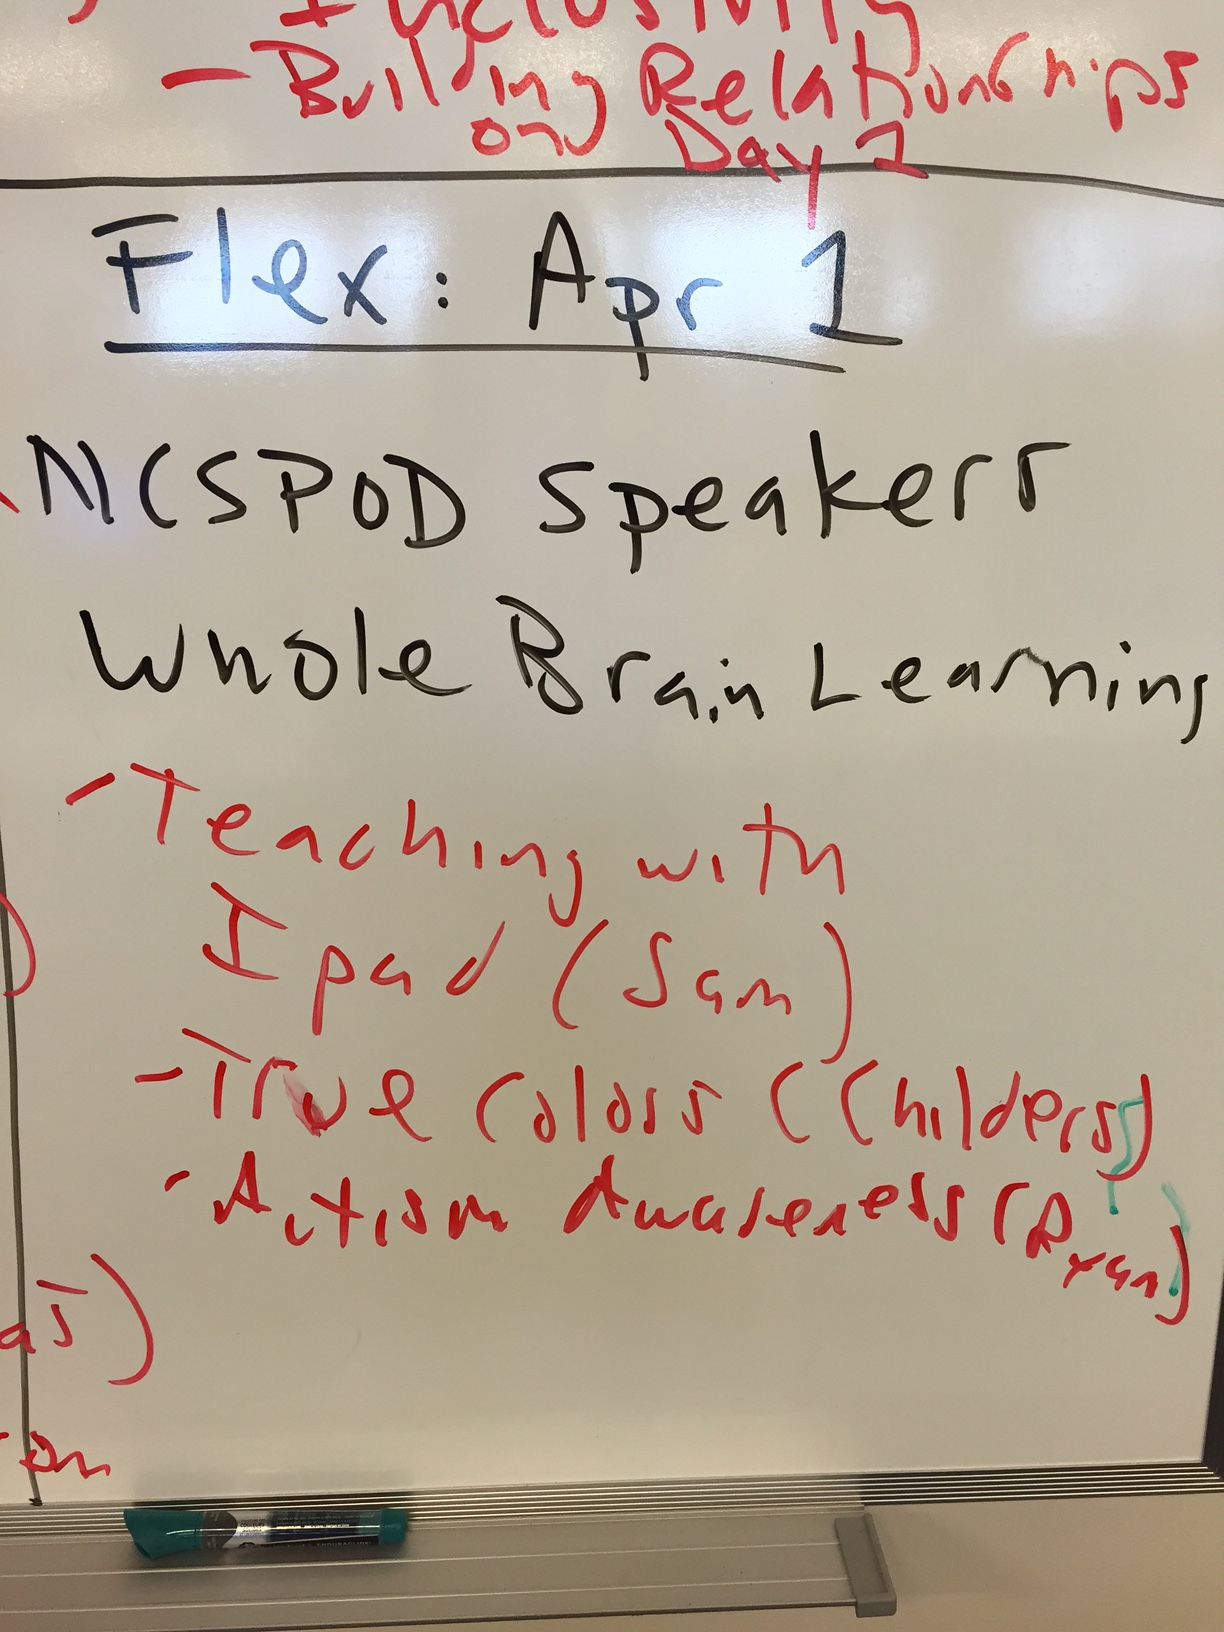 Inclusivity
- Building Relationships
on Day 1
Flex: Apr 1
NCSPOD Speakers
Whole Brain Learning
- Teaching with
Ipad (Sam)
- True Colors (Childers)
- Autism Awareness (Ryan)
as)
on